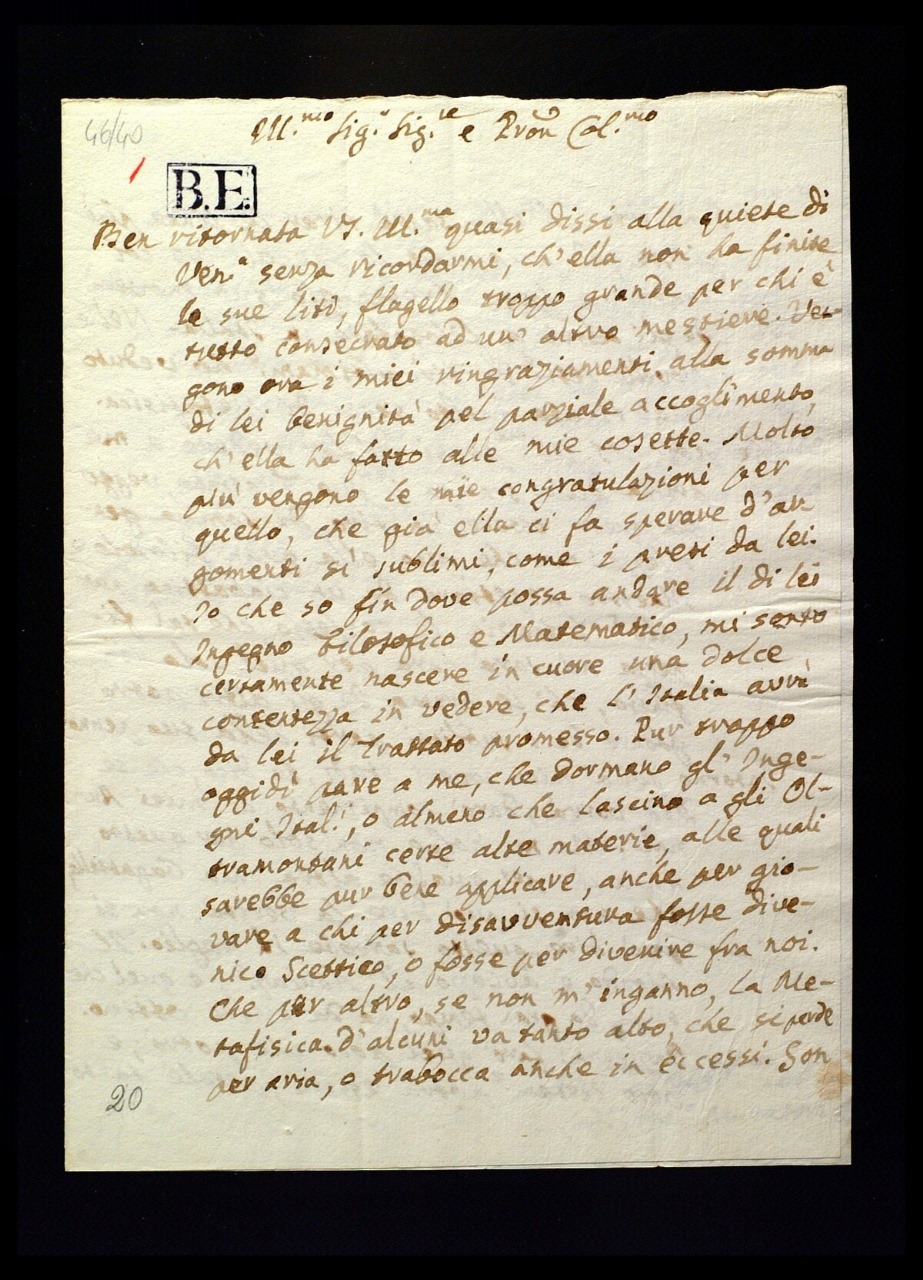 46/40
Ill.mo Sig.r Sig.re e Pron Col.mo
B.E.
Ben ritornata VS. Ill.ma quasi dissi alla quiete di
Ven.a senza ricordarmi, ch'ella non ha finite
le sue liti, flagello troppo grande per chi è
tutto consecrato ad un altro mestiere. Ven-
gono ora i miei ringraziamenti alla somma
di lei benignità pel parziale accoglimento,
ch'ella ha fatto alle mie cosette. Molto
più vengono le mie congratulazioni per
quello, che già ella ci fa sperare d'ar
gomenti sì sublimi, come i presi da lei.
Io che so fin dove possa andare il di lei
Ingegno Filosofico e Matematico, mi sento
certamente nascere in cuore una dolce
contentezza in vedere, che l'Italia avrà
da lei il Trattato promesso. Pur troppo
oggidì pare a me, che dormano gl'Inge-
gni Ital.i, o almeno che lascino a gli Ol-
tramontani certe alte materie, alle quali
sarebbe pur bene applicare, anche per gio-
vare a chi per disavventura fosse dive-
nuto Scettico, o fosse per divenire fra noi.
Che per altro, se non m'inganno, la Me-
tafisica d'alcuni va tanto alto, che si perde
per aria, o trabocca anche in eccessi. Son
20